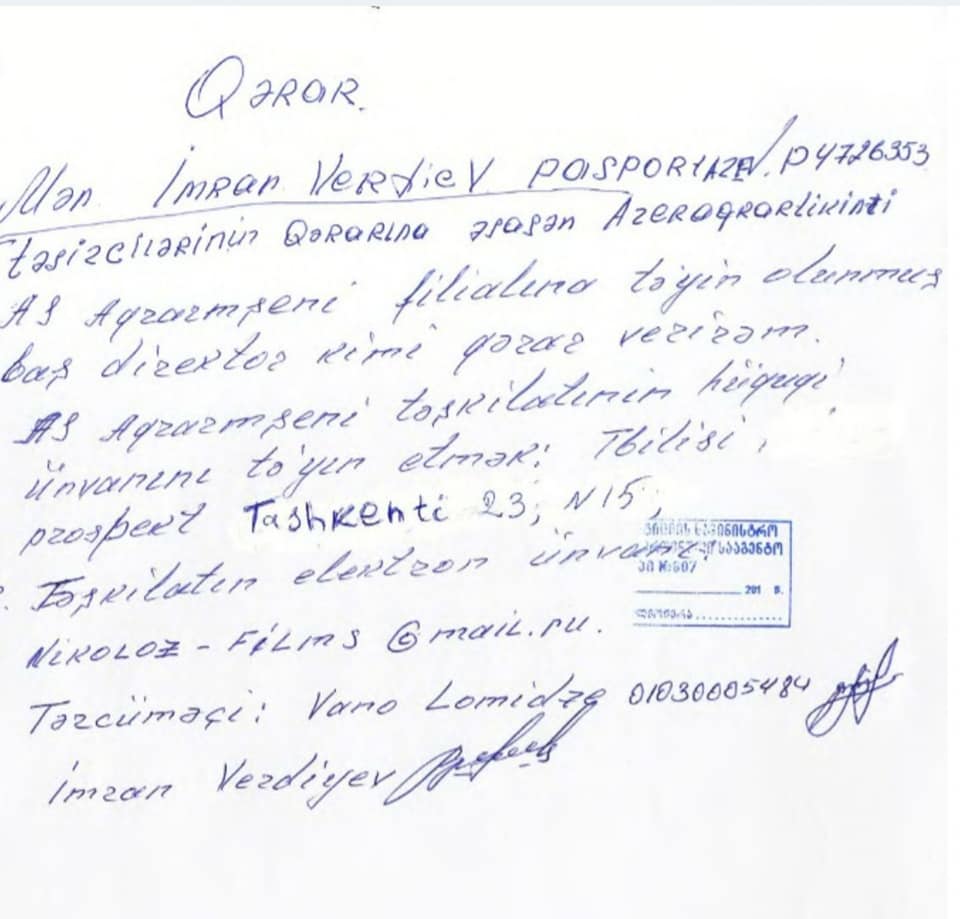 Qərar.
Mən İmran Verdiev pasport AZE N. P4726353
təsizcilərinin Qərarına əsasən Azeraqrartikinti
AS Aqrarmşeni filialına tə'yin olunmuş
baş direktor kimi qərar verirəm.
AS Aqrarmşeni təşkilatının hüquqi
ünvanını tə'yin etmək: Tbilisi,
prospekt Tashkenti 23, N15,
Təşkilatın elektron ünvanı:
Nikoloz-Films@mail.ru.
Tərcüməçi: Vano Lomidze 01030005484
İmran Verdiyev
სააგენტო
N:607
201 წ.